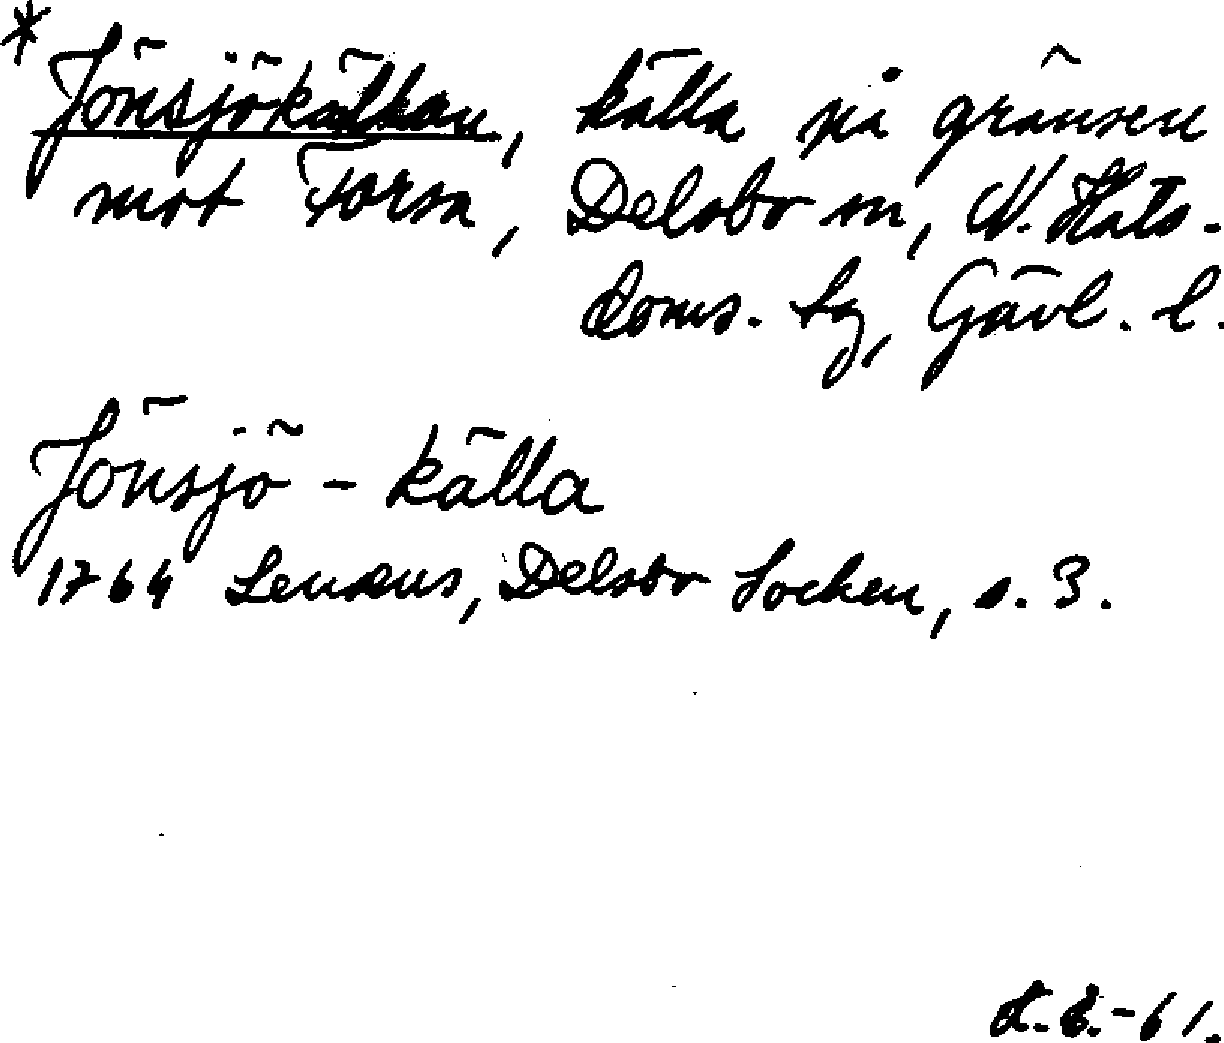 * Jönsjökällan, källa på gränsen
mot Forsa, Delsbo sn, N. Häls.
doms. tg, Gävl. l.
Jönsjö - källa
1764 Lenæus, Delsbo Socken, s. 3.
-61.